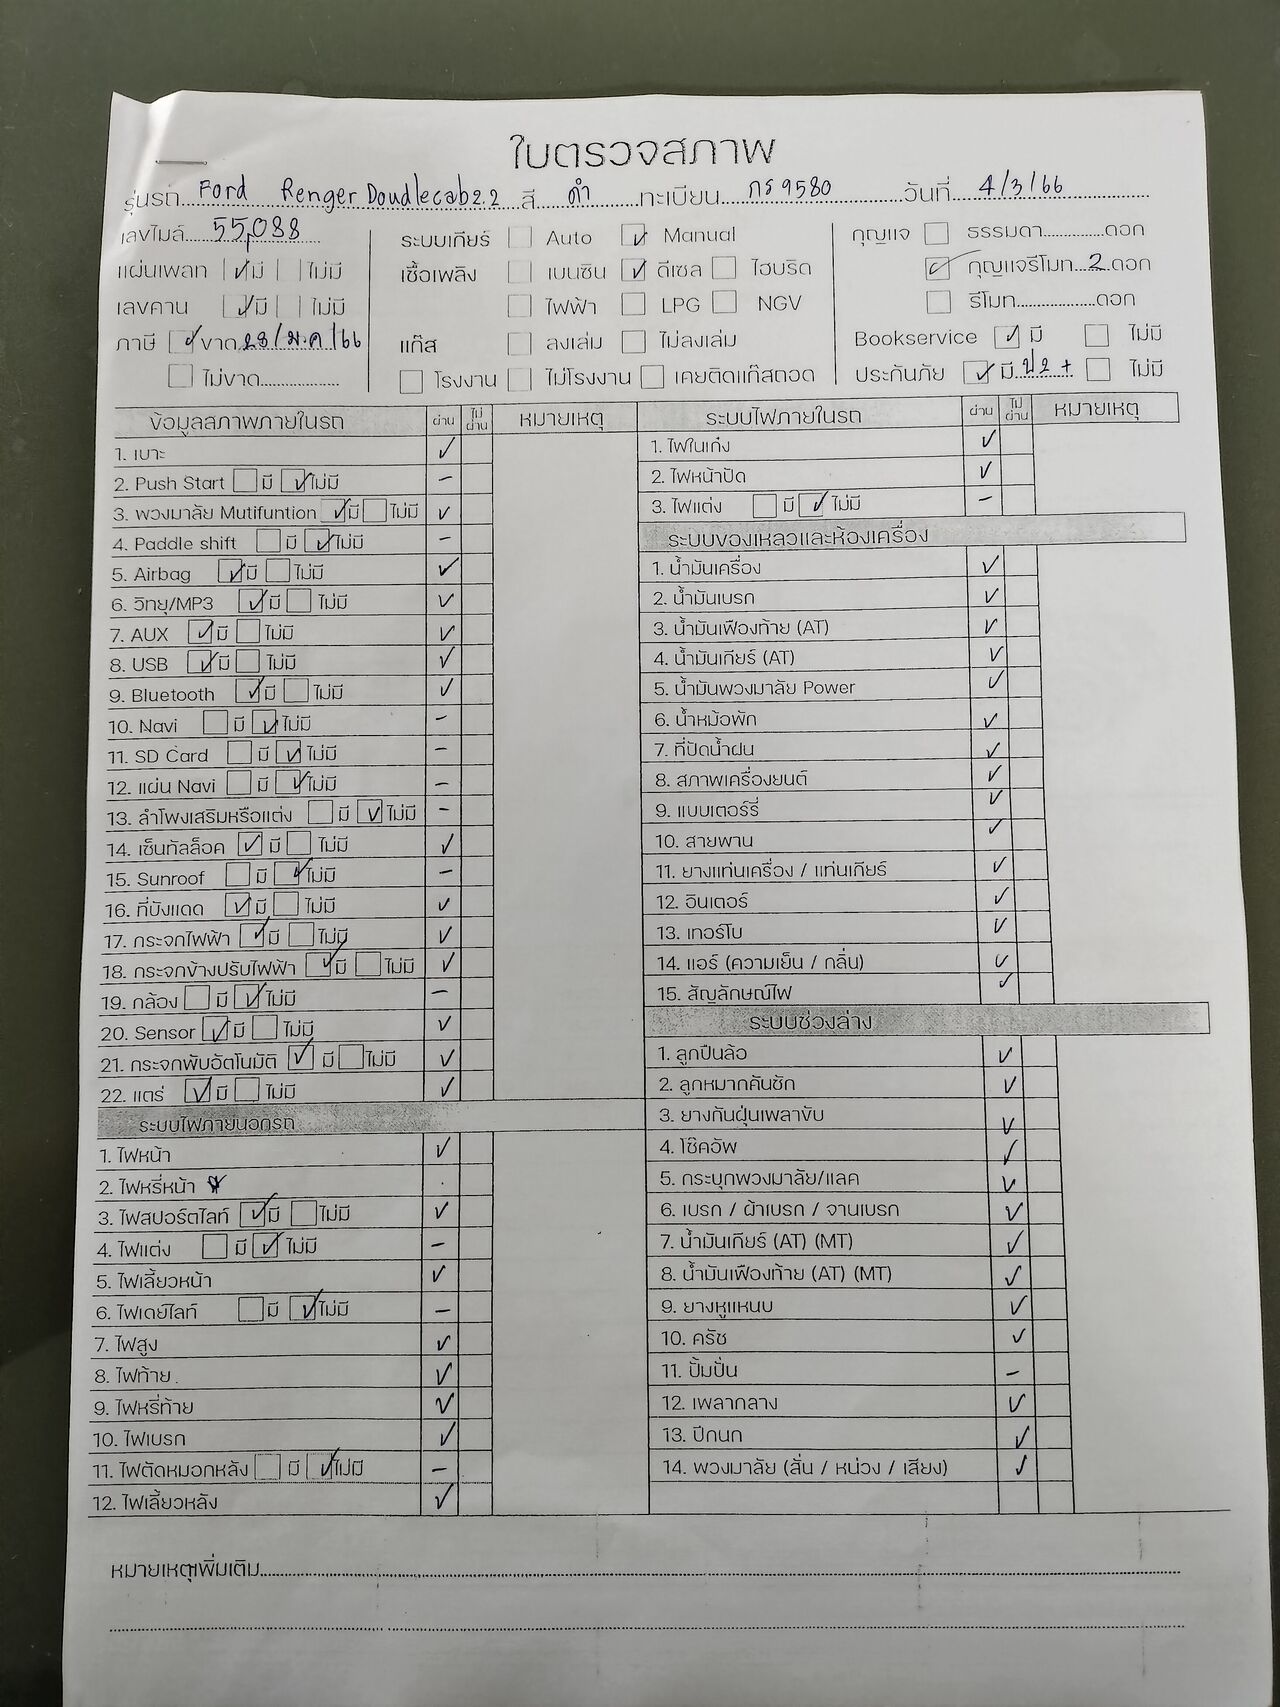 ใบตรวจสภาพ
รุ่นรถ Ford Renger Doudlecab 2.2 สี ดำ ทะเบียน กร 9580 วันที่ 4/3/66
เลขไมล์ 55,088
แผ่นเพลท ✓ มี ไม่มี
เลขคาน ✓ มี ไม่มี
ภาษี ✓ ขาด 28/ม.ค/66
ไม่ขาด
ระบบเกียร์ Auto ✓ Manual
เชื้อเพลิง เบนซิน ✓ ดีเซล ไฮบริด
ไฟฟ้า LPG NGV
แก๊ส ลงเล่ม ไม่ลงเล่ม
โรงงาน ไม่โรงงาน เคยติดแก๊สถอด
กุญแจ ธรรมดา ดอก
✓ กุญแจรีโมท 2 ดอก
รีโมท ดอก
Bookservice ✓ มี ไม่มี
ประกันภัย ✓ มี ป2+ ไม่มี
ข้อมูลสภาพภายในรถ ผ่าน ไม่ผ่าน หมายเหตุ
1. เบาะ ✓
2. Push Start มี ✓ ไม่มี –
3. พวงมาลัย Mutifuntion ✓ มี ไม่มี ✓
4. Paddle shift มี ✓ ไม่มี –
5. Airbag ✓ มี ไม่มี ✓
6. วิทยุ/MP3 ✓ มี ไม่มี ✓
7. AUX ✓ มี ไม่มี ✓
8. USB ✓ มี ไม่มี ✓
9. Bluetooth ✓ มี ไม่มี ✓
10. Navi มี ✓ ไม่มี –
11. SD Card มี ✓ ไม่มี –
12. แผ่น Navi มี ✓ ไม่มี –
13. ลำโพงเสริมหรือแต่ง มี ✓ ไม่มี –
14. เซ็นทัลล็อค ✓ มี ไม่มี ✓
15. Sunroof มี ✓ ไม่มี –
16. ที่บังแดด ✓ มี ไม่มี ✓
17. กระจกไฟฟ้า ✓ มี ไม่มี ✓
18. กระจกข้างปรับไฟฟ้า ✓ มี ไม่มี ✓
19. กล้อง มี ✓ ไม่มี –
20. Sensor ✓ มี ไม่มี ✓
21. กระจกพับอัตโนมัติ ✓ มี ไม่มี ✓
22. แตร่ ✓ มี ไม่มี ✓
ระบบไฟภายนอกรถ
1. ไฟหน้า ✓
2. ไฟหรี่หน้า
3. ไฟสปอร์ตไลท์ ✓ มี ไม่มี ✓
4. ไฟแต่ง มี ✓ ไม่มี –
5. ไฟเลี้ยวหน้า ✓
6. ไฟเดย์ไลท์ มี ✓ ไม่มี –
7. ไฟสูง ✓
8. ไฟท้าย ✓
9. ไฟหรี่ท้าย ✓
10. ไฟเบรก ✓
11. ไฟตัดหมอกหลัง มี ✓ ไม่มี –
12. ไฟเลี้ยวหลัง ✓
ระบบไฟภายในรถ ผ่าน ไม่ผ่าน หมายเหตุ
1. ไฟในเก๋ง ✓
2. ไฟหน้าปัด ✓
3. ไฟแต่ง มี ✓ ไม่มี –
ระบบของเหลวและห้องเครื่อง
1. น้ำมันเครื่อง ✓
2. น้ำมันเบรก ✓
3. น้ำมันเฟืองท้าย (AT) ✓
4. น้ำมันเกียร์ (AT) ✓
5. น้ำมันพวงมาลัย Power ✓
6. น้ำหม้อพัก ✓
7. ที่ปัดน้ำฝน ✓
8. สภาพเครื่องยนต์ ✓
9. แบบเตอร์รี่ ✓
10. สายพาน ✓
11. ยางแท่นเครื่อง / แท่นเกียร์ ✓
12. อินเตอร์ ✓
13. เทอร์โบ ✓
14. แอร์ (ความเย็น / กลิ่น) ✓
15. สัญลักษณ์ไฟ ✓
ระบบช่วงล่าง
1. ลูกปืนล้อ ✓
2. ลูกหมากคันชัก ✓
3. ยางกันฝุ่นเพลาขับ ✓
4. โช๊คอัพ ✓
5. กระบุกพวงมาลัย/แลค ✓
6. เบรก / ผ้าเบรก / จานเบรก ✓
7. น้ำมันเกียร์ (AT) (MT) ✓
8. น้ำมันเฟืองท้าย (AT) (MT) ✓
9. ยางหูแหนบ ✓
10. ครัช ✓
11. ปั้มปั่น –
12. เพลากลาง ✓
13. ปีกนก ✓
14. พวงมาลัย (สั่น / หน่วง / เสียง) ✓
หมายเหตุเพิ่มเติม